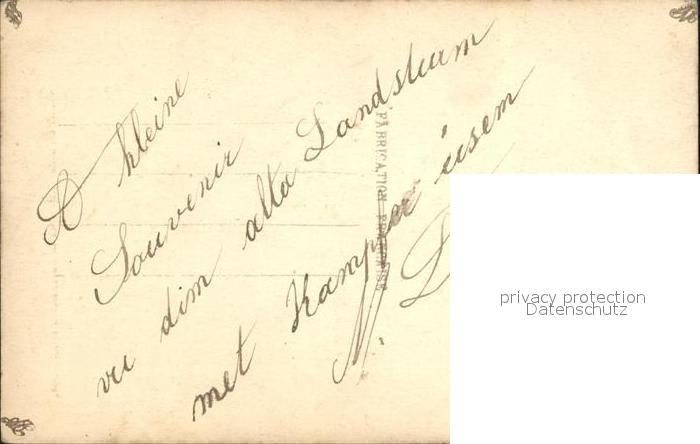 A kleine
Souvenir
vu dim alta Landsturm
met Kamp üsem
N. L
FABRICATION
privacy protection
Datenschutz